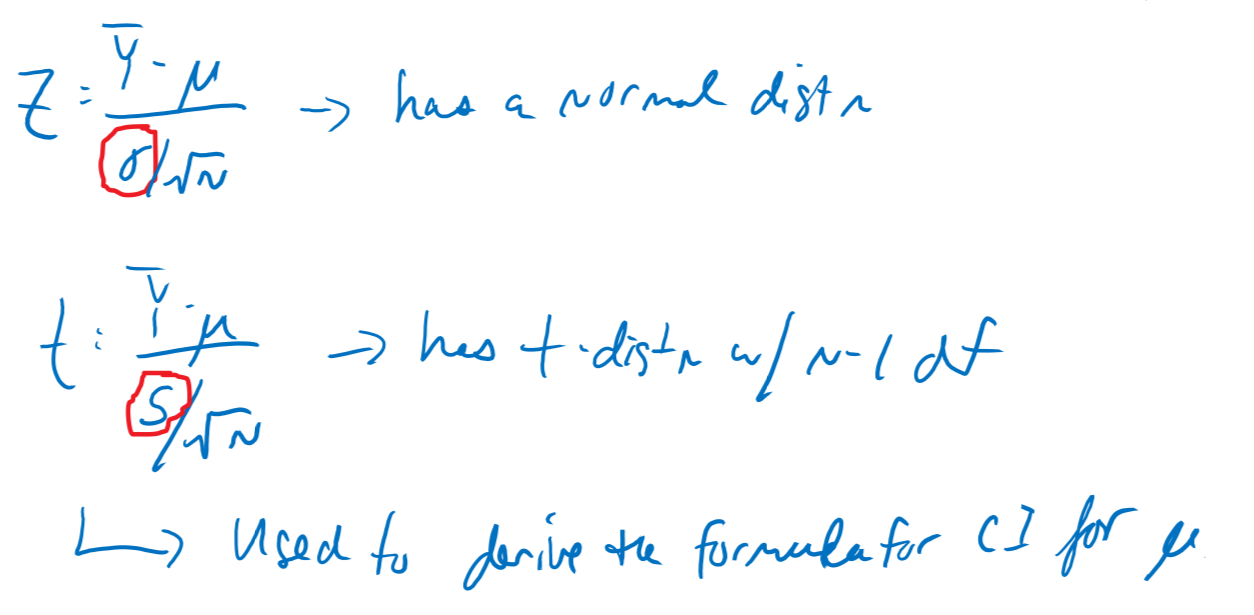 Z = (Ȳ - μ) / (σ/√n) → has a normal distn
t = (Ȳ - μ) / (S/√n) → has t-distn w/ n-1 df
↳ Used to derive the formula for CI for μ